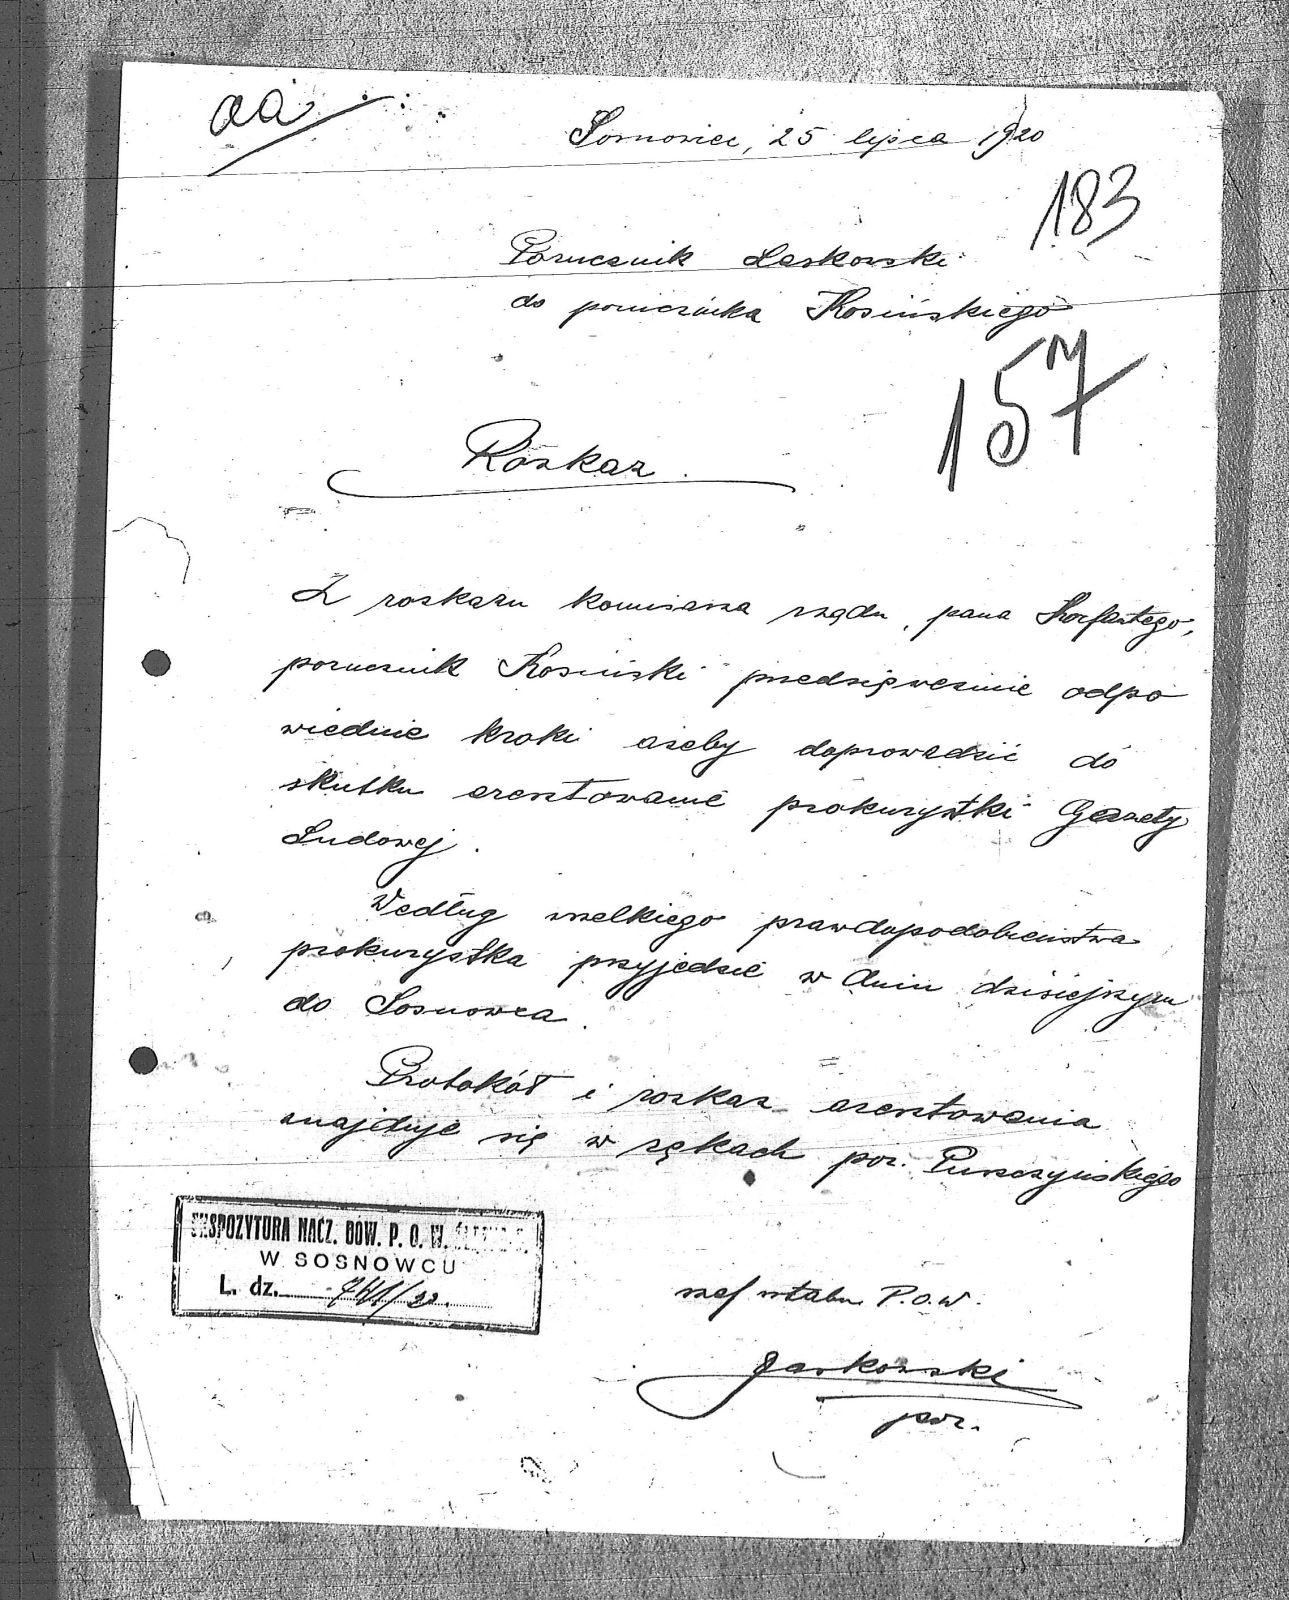 aa
Sosnowiec, 25 lipca 1920
183
Porucznik Laskowski
do porucznika Kosińskiego
157
Rozkaz.
Z rozkazu komisarza rządu, pana Korfantego,
porucznik Kosiński przedsięweźmie odpo
wiednie kroki ażeby doprowadzić do
skutku aresztowanie prokurystki Gazety
Ludowej.
Według wszelkiego prawdopodobieństwa
prokurystka przyjedzie w dniu dzisiejszym
do Sosnowca.
Protokół i rozkaz aresztowania
znajduje się w rękach por. Puszczyńskiego
EKSPOZYTURA NACZ. DOW. P. O. W.
W SOSNOWCU
L. dz.
szef sztabu P.O.W.
por.